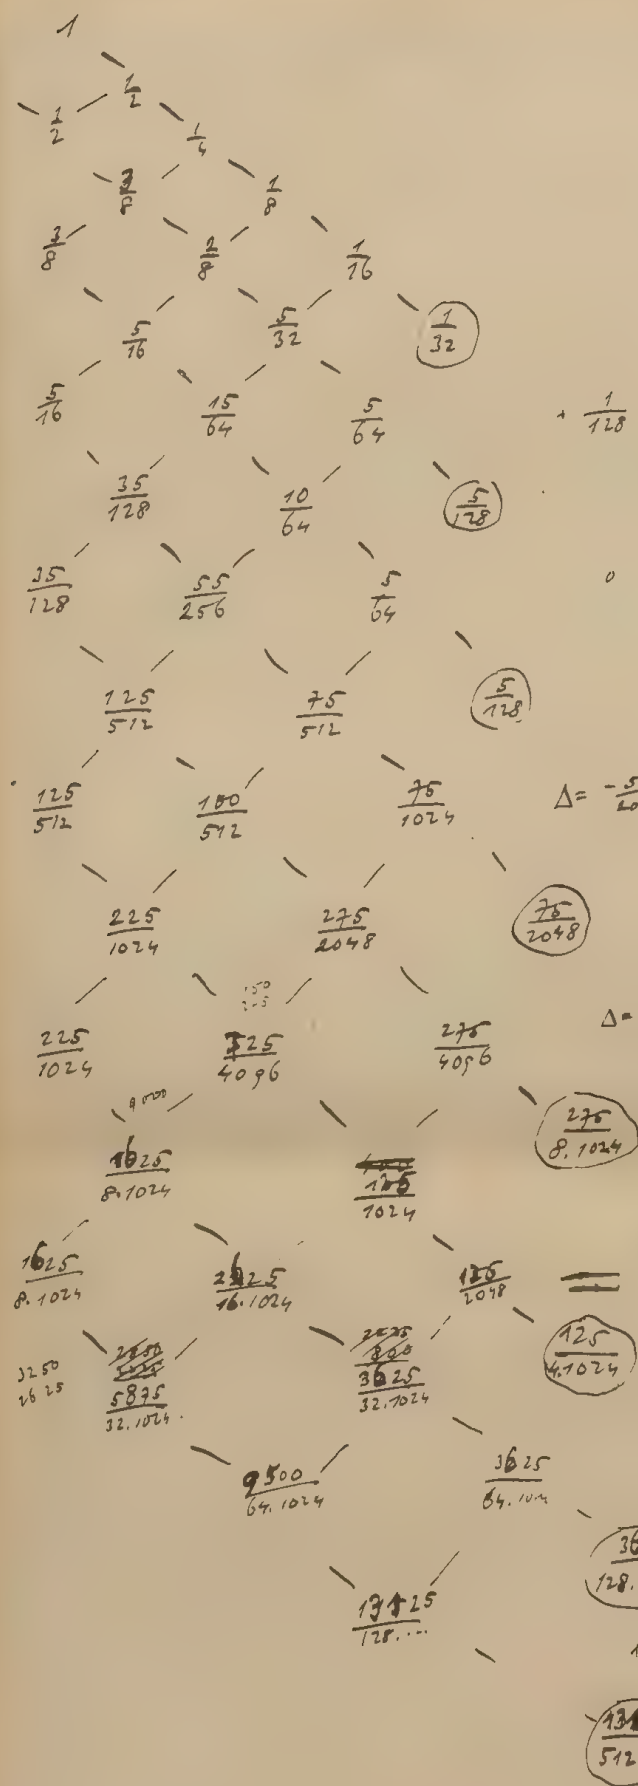 1
1/2
1/2
1/4
3/8 1/8
3/8 2/8 1/16
5/16 5/32 1/32
5/16 15/64 5/64 + 1/128
35/128 10/64 5/128
35/128 55/256 5/64 0
125/512 75/512 5/128
125/512 100/512 75/1024 Δ= -5
225/1024 275/2048 75/2048
225/1024 525/4096 275/4096 Δ=
9000 275/8.1024
1625/8.1024 125/1024
1625/8.1024 2625/16.1024 125/2048 =
3250 5875/32.1024. 3625/32.1024 125/4.1024
2625
9500/64.1024 3625/64.
128.
13125/128....
512